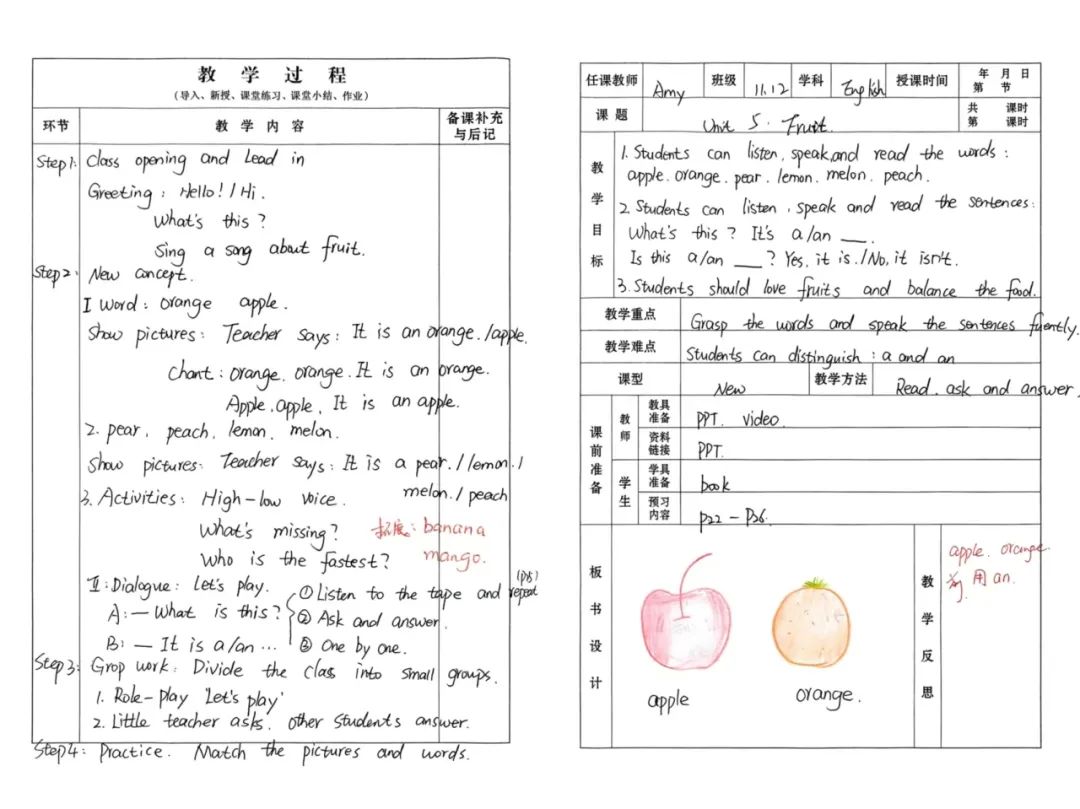 教 学 过 程
(导入、新授、课堂练习、课堂小结、作业)
环节 教 学 内 容 备课补充与后记
Step1: Class opening and Lead in
Greeting: Hello! / Hi.
What's this?
Sing a song about fruit.
Step2: New concept.
I word: orange apple.
Show pictures: Teacher says: It is an orange./apple.
Chant: orange, orange. It is an orange.
Apple, apple, It is an apple.
2. pear, peach, lemon, melon.
Show pictures: Teacher says: It is a pear. / lemon. /
melon. / peach
3. Activities: High-low voice.
What's missing? 拓展: banana
Who is the fastest? mango.
II: Dialogue: Let's play. ① Listen to the tape and repeat
A: — What is this? ② Ask and answer.
B: — It is a/an ... ③ One by one.
Step3: Grop work: Divide the class into small groups.
1. Role-play 'Let's play'
2. Little teacher asks, other students answer.
Step4: Practice. Match the pictures and words.
任课教师 Amy 班级 11.12 学科 English 授课时间 年 月 日 第 节
课 题 Unit 5. Fruit. 共 课时 第 课时
教学目标
1. Students can listen, speak, and read the words:
apple. orange. pear. lemon. melon. peach.
2. Students can listen, speak and read the sentences:
What's this? It's a/an ___.
Is this a/an ___? Yes, it is. / No, it isn't.
3. Students should love fruits and balance the food.
教学重点 Grasp the words and speak the sentences fuently.
教学难点 Students can distinguish: a and an
课型 New 教学方法 Read. ask and answer.
课前准备
教师 教具准备 PPT. video.
资料链接 PPT.
学生 学具准备 book
预习内容 P22 - P26.
板书设计
apple orange.
教学反思
apple. orange.
用 an.